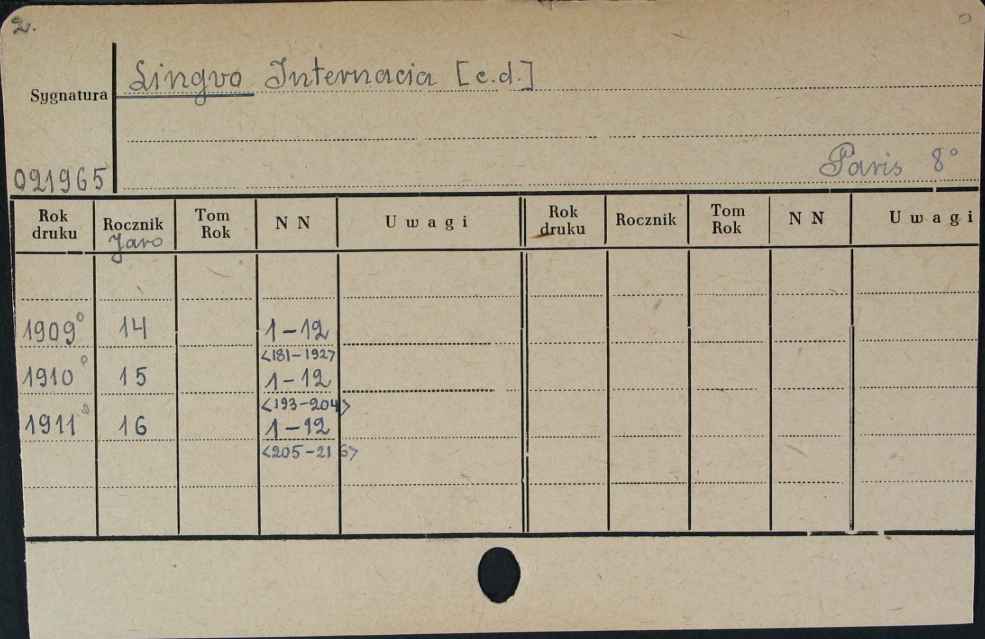 2.
Lingvo Internacia [c.d.]
Sygnatura
Paris 8°
021965
Rok druku Rocznik Jaro Tom Rok N N Uwagi Rok druku Rocznik Tom Rok N N Uwagi
1909° 14 1-12
<181-192>
1910° 15 1-12
<193-204>
1911° 16 1-12
<205-216>